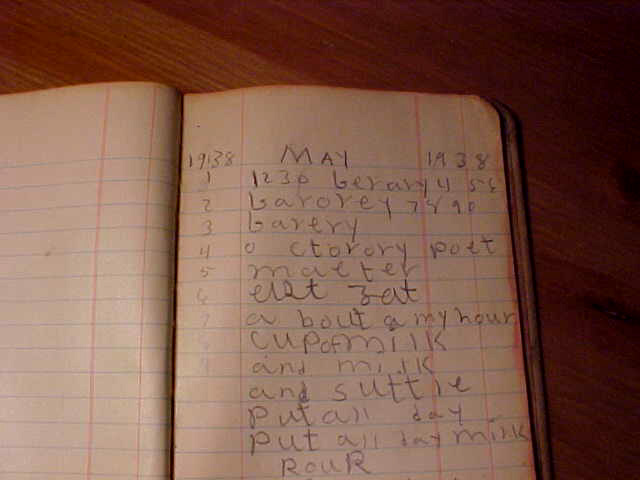 1938 MAY 1938
1 1230 berary 4 56
2 barorey 7890
3 barery
4 0 ctorory poet
5 matter
6 elet 3at
7 a bout a my hour
cup of milk
and milk
and suttle
put all day
put all day milk
ROUR